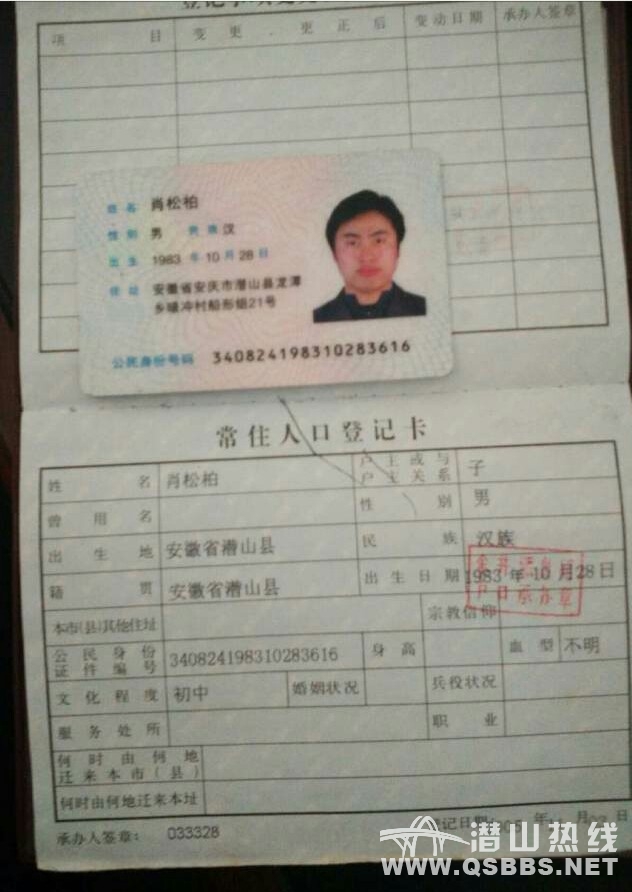 项 目 变更、更正后 变动日期 承办人签章
姓名 肖松柏
性别 男 民族 汉
出生 1983 年 10 月 28 日
住址 安徽省安庆市潜山县龙潭
乡啸冲村船形组21号
公民身份号码 340824198310283616
常住人口登记卡
姓名 肖松柏 户主或与户主关系 子
曾用名 性别 男
出生地 安徽省潜山县 民族 汉族
籍贯 安徽省潜山县 出生日期 1983 年 10 月 28 日
本市(县)其他住址 宗教信仰
公民身份证件编号 340824198310283616 身高 血型 不明
文化程度 初中 婚姻状况 兵役状况
服务处所 职业
何时由何地迁来本市(县)
何时由何地迁来本址
承办人签章: 033328 登记日期: 年 月 日
潜山热线
WWW.QSBBS.NET